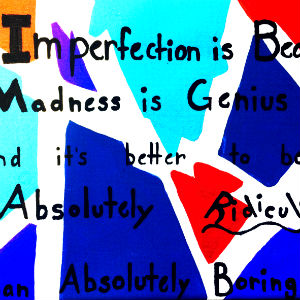 Imperfection is Bea
Madness is Genius
nd it's better to be
Absolutely Ridicul
an Absolutely Boring